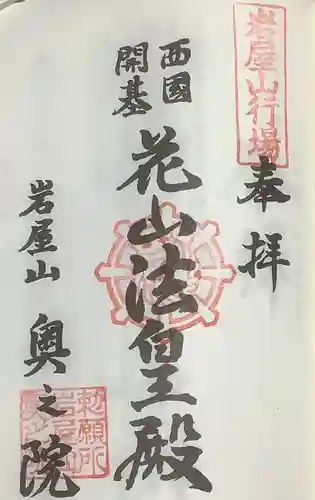 岩屋山行場
奉拝
西國
開基
花山法皇殿
岩屋山
奥之院
勅願所
岩屋山